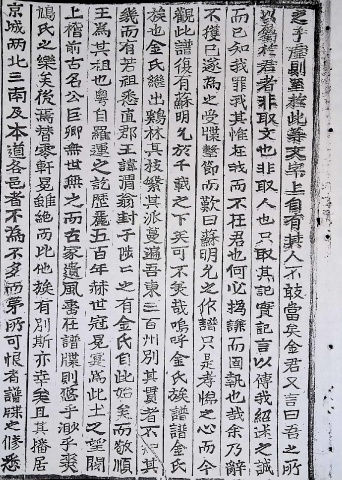 之乎虛則至於此等文字上自有其人不敢當矣金君又言曰吾之所
以屬於君者非取文也非取人也只取其記實記言以傳我紹述之誠
而已知我罪我其惟在我而不在君也何必撝謙而固執也哉余乃辭
不獲已遂為之受牒擊節而歎曰蘇明允之作譜只是孝悌之心而今
觀此譜復有蘇明允於千載之下矣可不美哉嗚呼金氏族譜譜金氏
族也金氏繼出鷄林其枝繁其派蔓遍吾東三百州別其貫者不知其
幾而有若祖悉直郡王諱渭翁封于陟〻之有金氏自此始矣而敬順
王為其祖也粵自羅運之訖歷麗五百年赫世冠冕為此土之望閥
上稽前古名公巨卿無世無之而古家遺風盡在譜牒則悠乎渺乎爽
鳩氏之樂矣後漏替零軒冕雖絶而比他族有別斯亦幸矣且其播居
京城兩北三南及本道各邑者不為不多而第所可恨者譜牒之修悉